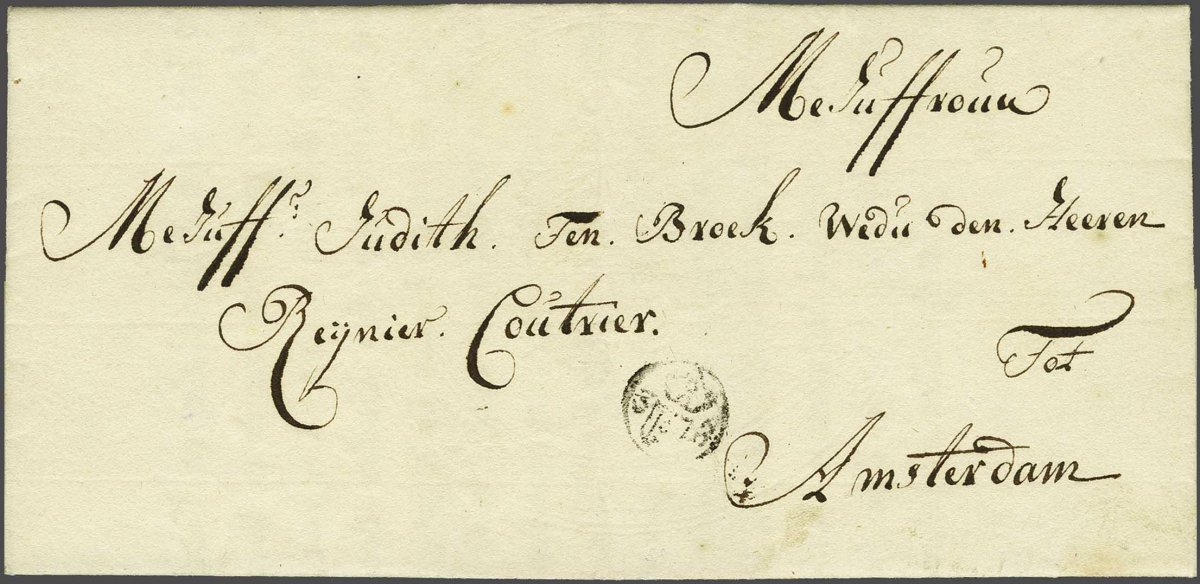 MeJuffrouw
MeJuffr. Judith. Ten. Broek. Wedu den. Heeren
Reijnier. Coutrier.
Tot
Amsterdam